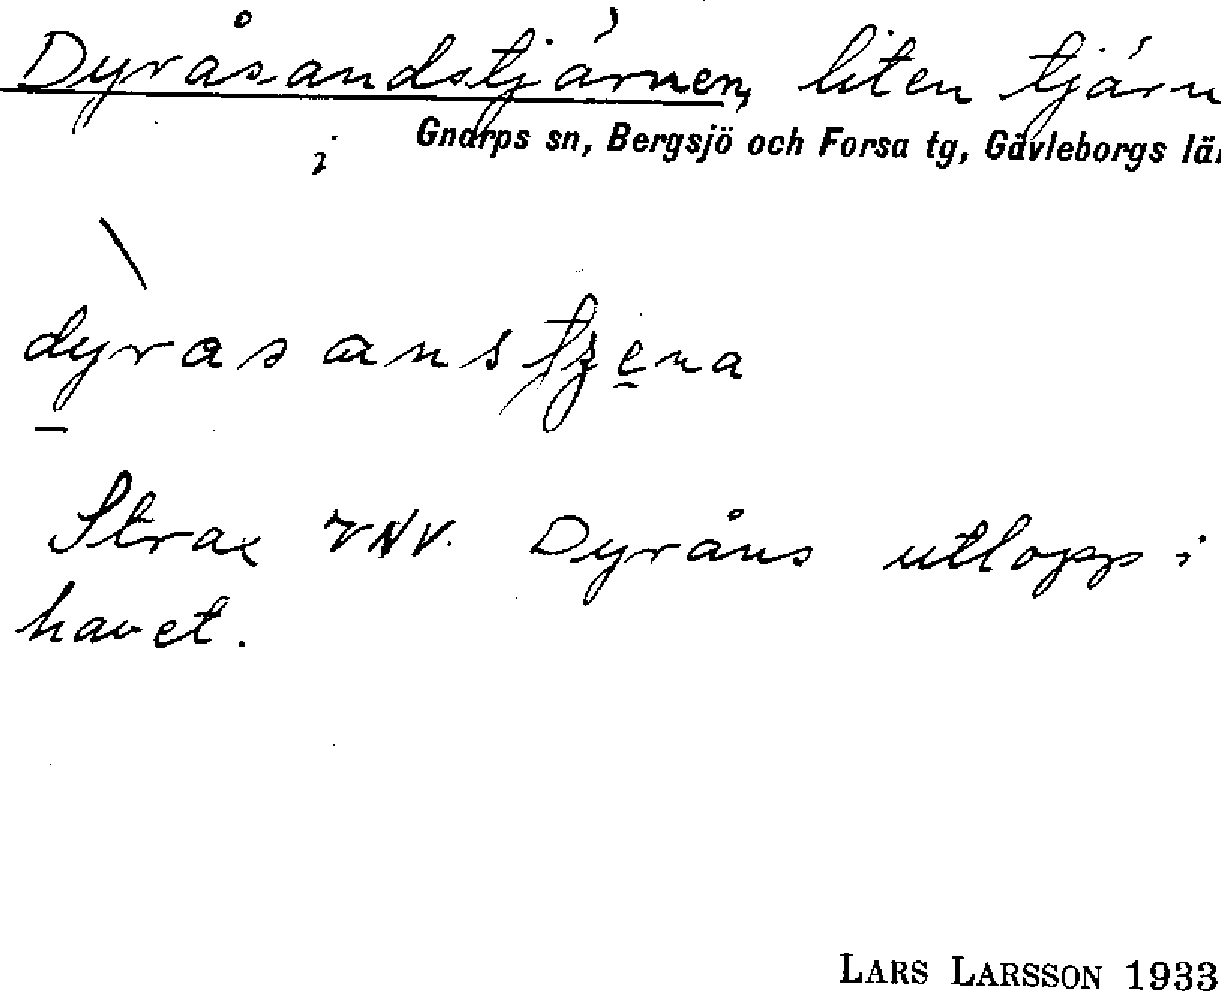 Dyråsandstjärnen, liten tjärn
i Gnarps sn, Bergsjö och Forsa tg, Gävleborgs län
dyrasans
Strax VNV. Dyråns utlopp i
havet.
LARS LARSSON 1933